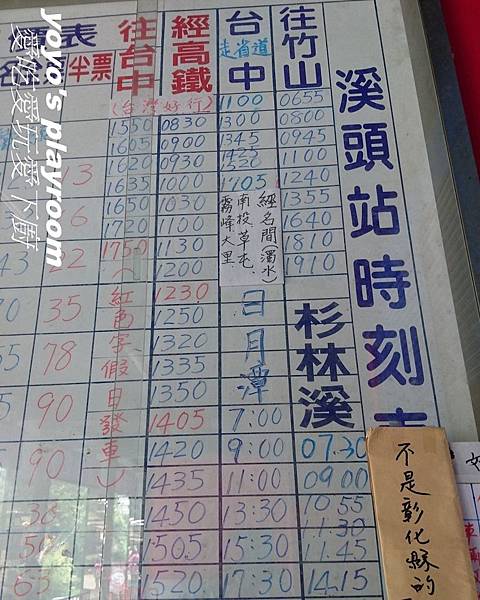 溪頭站時刻
往竹山
0655
0800
0945
1100
1240
1355
1640
1810
1910
杉林溪
07.30
0900
10.55
11.45
14.15
台中
走省道
1100
1300
1345
1705
經名間(濁水)
南投草屯、
霧峰大里
日月潭
7:00
9:00
11:00
13:30
15:30
17:30
往台中
經高鐵
(台灣好行)
1550 0830
1605 0900
1620 0930
1635 1000
1650 1030
1720 1100
1750 1130
1200
1230
1250
1320
1335
1350
1405
1420
1435
1450
1505
1520
(紅色字假日發車)
表
半票
22
35
78
90
90
不是彰化縣的
yoyo's playroom
愛吃愛玩愛下廚